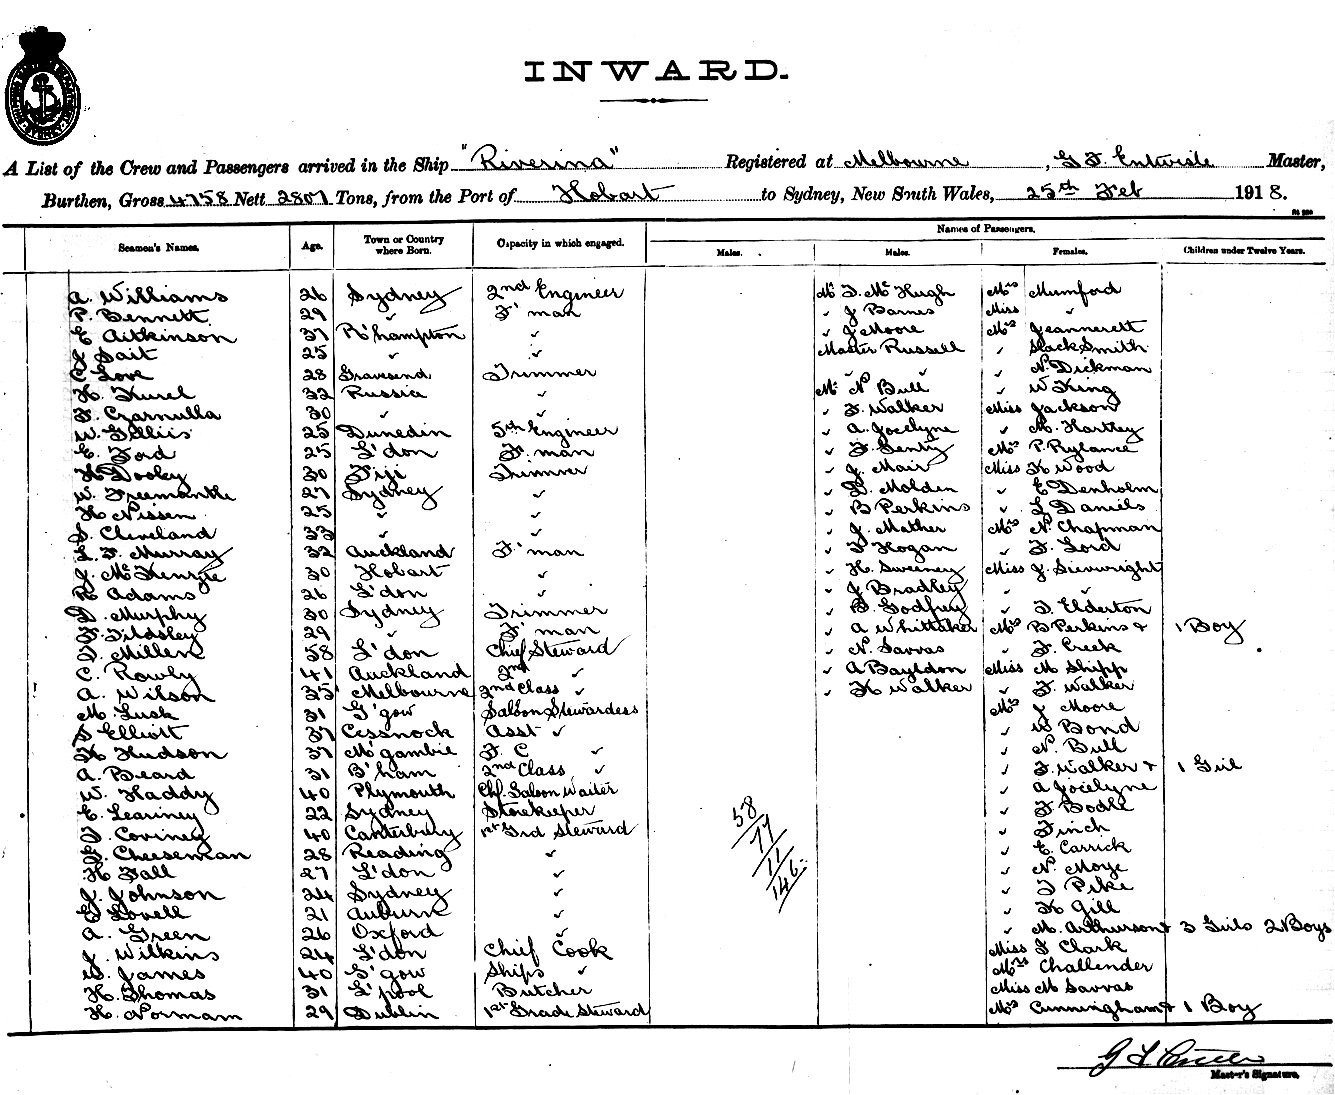 INWARD.
A List of the Crew and Passengers arrived in the Ship "Riverina" Registered at Melbourne, G F Entwisle Master,
Burthen, Gross 4758 Nett 2807 Tons, from the Port of Hobart to Sydney, New South Wales, 25th Feb 1918.
Names of Passengers.
Seamen's Names. Age. Town or Country where Born. Capacity in which engaged. Males. Males. Females. Children under Twelve Years.
A. Williams 26 Sydney 2nd Engineer Mr T. McHugh Mrs Mumford
P. Bennett 29 ✓ F'man ✓ J Barnes Miss ✓
E Aitkinson 37 R'hampton ✓ ✓ J Moore Mrs Jeannerett
J Sait 25 ✓ ✓ Master Russell ✓ Slack Smith
C Love 28 Gravesend Trimmer ✓ ✓ ✓ N. Dickman
H. Kurel 32 Russia ✓ Mr N Bull ✓ W King
F. Czarnulla 30 ✓ ✓ ✓ F. Walker Miss Jackson
W. Gillies 25 Dunedin 5th Engineer ✓ A. Jocelyne ✓ M. Hartley
E. Ford 25 L'don F. man ✓ F. Gentry Mrs P. Rylance
H Dooley 30 Fiji Trimmer ✓ J. Mair Miss H Wood
W. Freemantle 27 Sydney ✓ ✓ D. Molden ✓ E Denholm
H Nissen 25 ✓ ✓ ✓ B Perkins ✓ L Daniels
S. Cleveland 33 ✓ ✓ ✓ J. Mather Mrs N. Chapman
L. F. Murray 32 Auckland F'man ✓ T Hogan ✓ F. Lord
J. McKenzie 30 Hobart ✓ ✓ H. Sweeney Miss J. Sievwright
R Adams 26 L'don ✓ ✓ J Bradley ✓ ✓
D. Murphy 30 Sydney Trimmer ✓ B. Godfrey ✓ T. Elderton
F. Tildsley 29 ✓ F'man ✓ A Whittaker Mrs B Perkins + 1 Boy
D. Millen 58 L'don Chief Steward ✓ N. Savvas ✓ F. Creek
C. Rowly 41 Auckland 2nd ✓ ✓ A Bayldon Miss M Shipp
A. Wilson 35 Melbourne 2nd Class ✓ ✓ H Walker ✓ F. Walker
M. Lusk 31 G'gow Saloon Stewardess Mrs J Moore
S Elliott 37 Cessnock Asst ✓ ✓ W Bond
H Hudson 37 Mt gambie F. C ✓ ✓ N. Bull
A. Beard 31 B'ham 2nd Class ✓ ✓ F. Walker + 1 Girl
W. Haddy 40 Plymouth Chf. Saloon Waiter ✓ A Jocelyne
E. Leariney 22 Sydney Storekeeper ✓ F. Bodle
T. Coviney 40 Canterbury 1st Grd Steward ✓ Finch
G. Cheeseman 28 Reading ✓ ✓ E. Carrick
H. Fall 27 L'don ✓ ✓ N. Moye
J. Johnson 24 Sydney ✓ ✓ T Pike
G Lovell 21 Auburn ✓ ✓ H Gill
A. Green 26 Oxford ✓ ✓ M. Arthurson + 3 Girls 2 Boys
J. Wilkins 24 L'don Chief Cook Miss J Clark
W. James 40 G'gow Ships ✓ Mrs Challender
H. Thomas 31 L'pool Butcher Miss M Savvas
H. Normam 29 Dublin 1st Grade Steward Mrs Cunningham + 1 Boy
58
77
11
146
Master's Signature.